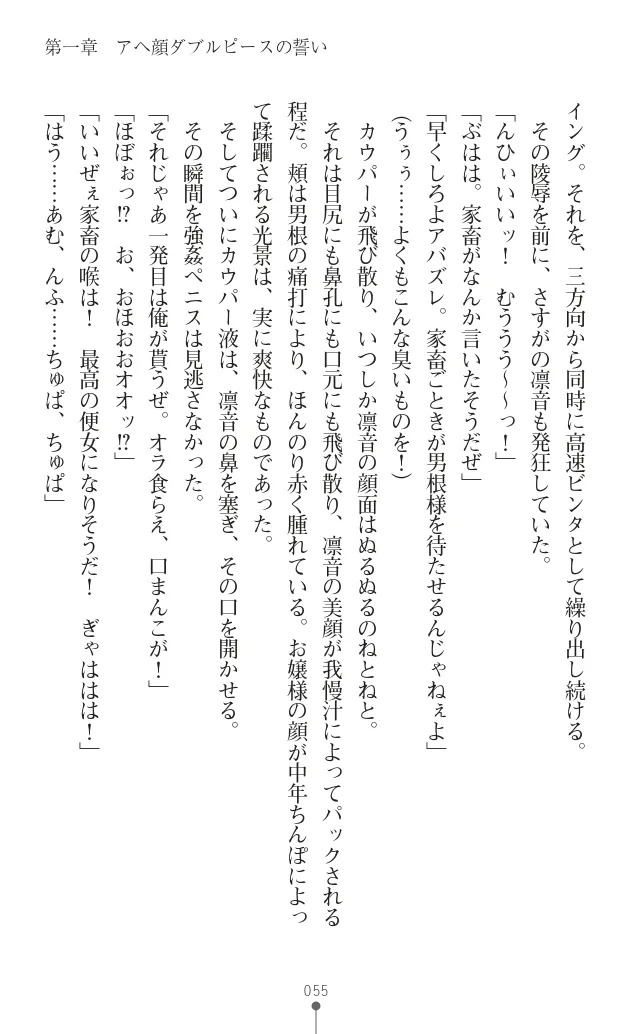 第一章　アヘ顔ダブルピースの誓い
イング。それを、三方向から同時に高速ビンタとして繰り出し続ける。
その陵辱を前に、さすがの凛音も発狂していた。
「んひぃいいッ！　むううう〜〜っ！」
「ぶはは。家畜がなんか言いたそうだぜ」
「早くしろよアバズレ。家畜ごときが男根様を待たせるんじゃねぇよ」
(うぅぅ……よくもこんな臭いものを！)
カウパーが飛び散り、いつしか凛音の顔面はぬるぬるのねとねと。
それは目尻にも鼻孔にも口元にも飛び散り、凛音の美顔が我慢汁によってパックされる
程だ。頬は男根の痛打により、ほんのり赤く腫れている。お嬢様の顔が中年ちんぽによっ
て蹂躙される光景は、実に爽快なものであった。
そしてついにカウパー液は、凛音の鼻を塞ぎ、その口を開かせる。
その瞬間を強姦ペニスは見逃さなかった。
「それじゃあ一発目は俺が貰うぜ。オラ食らえ、口まんこが！」
「ほぼぉっ!?　お、おほおおオオッ!?」
「いいぜぇ家畜の喉は！　最高の便女になりそうだ！　ぎゃははは！」
「はう……あむ、んふ……ちゅぱ、ちゅぱ」
055